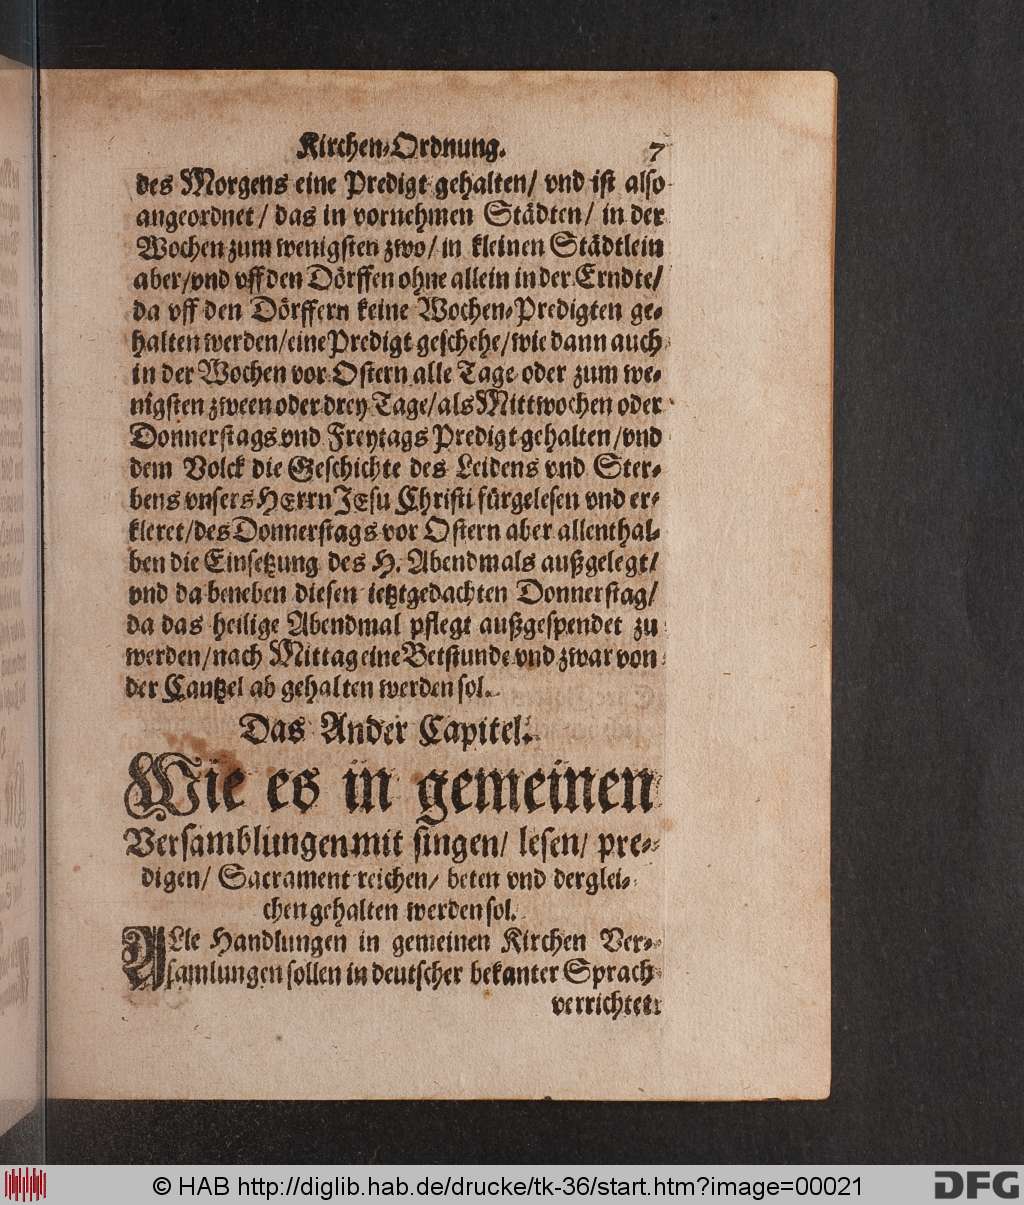 Kirchen-Ordnung. 7
des Morgens eine Predigt gehalten/ vnd ist also
angeordnet/ das in vornehmen Städten/ in der
Wochen zum wenigsten zwo/ in kleinen Städtlein
aber/ vnd vff den Dörffen ohne allein in der Erndte/
da vff den Dörffern keine Wochen-Predigten ge-
halten werden/ eine Predigt geschehe/ wie dann auch
in der Wochen vor Ostern alle Tage oder zum we-
nigsten zween oder drey Tage/ als Mittwochen oder
Donnerstags vnd Freytags Predigt gehalten/ vnd
dem Volck die Geschichte des Leidens vnd Ster-
bens vnsers HErrn JEsu Christi fürgelesen vnd er-
kleret/ des Donnerstags vor Ostern aber allenthal-
ben die Einsetzung des H. Abendmals außgelegt/
vnd da beneben diesen ietztgedachten Donnerstag/
da das heilige Abendmal pflegt außgespendet zu
werden/ nach Mittag eine Betstunde vnd zwar von
der Cantzel ab gehalten werden sol.
Das Ander Capitel.
Wie es in gemeinen
Versamblungen mit singen/ lesen/ pre-
digen/ Sacrament reichen/ beten vnd derglei-
chen gehalten werden sol.
ALle Handlungen in gemeinen Kirchen Ver-
samlungen sollen in deutscher bekanter Sprach
verrichtet
© HAB http://diglib.hab.de/drucke/tk-36/start.htm?image=00021
DFG